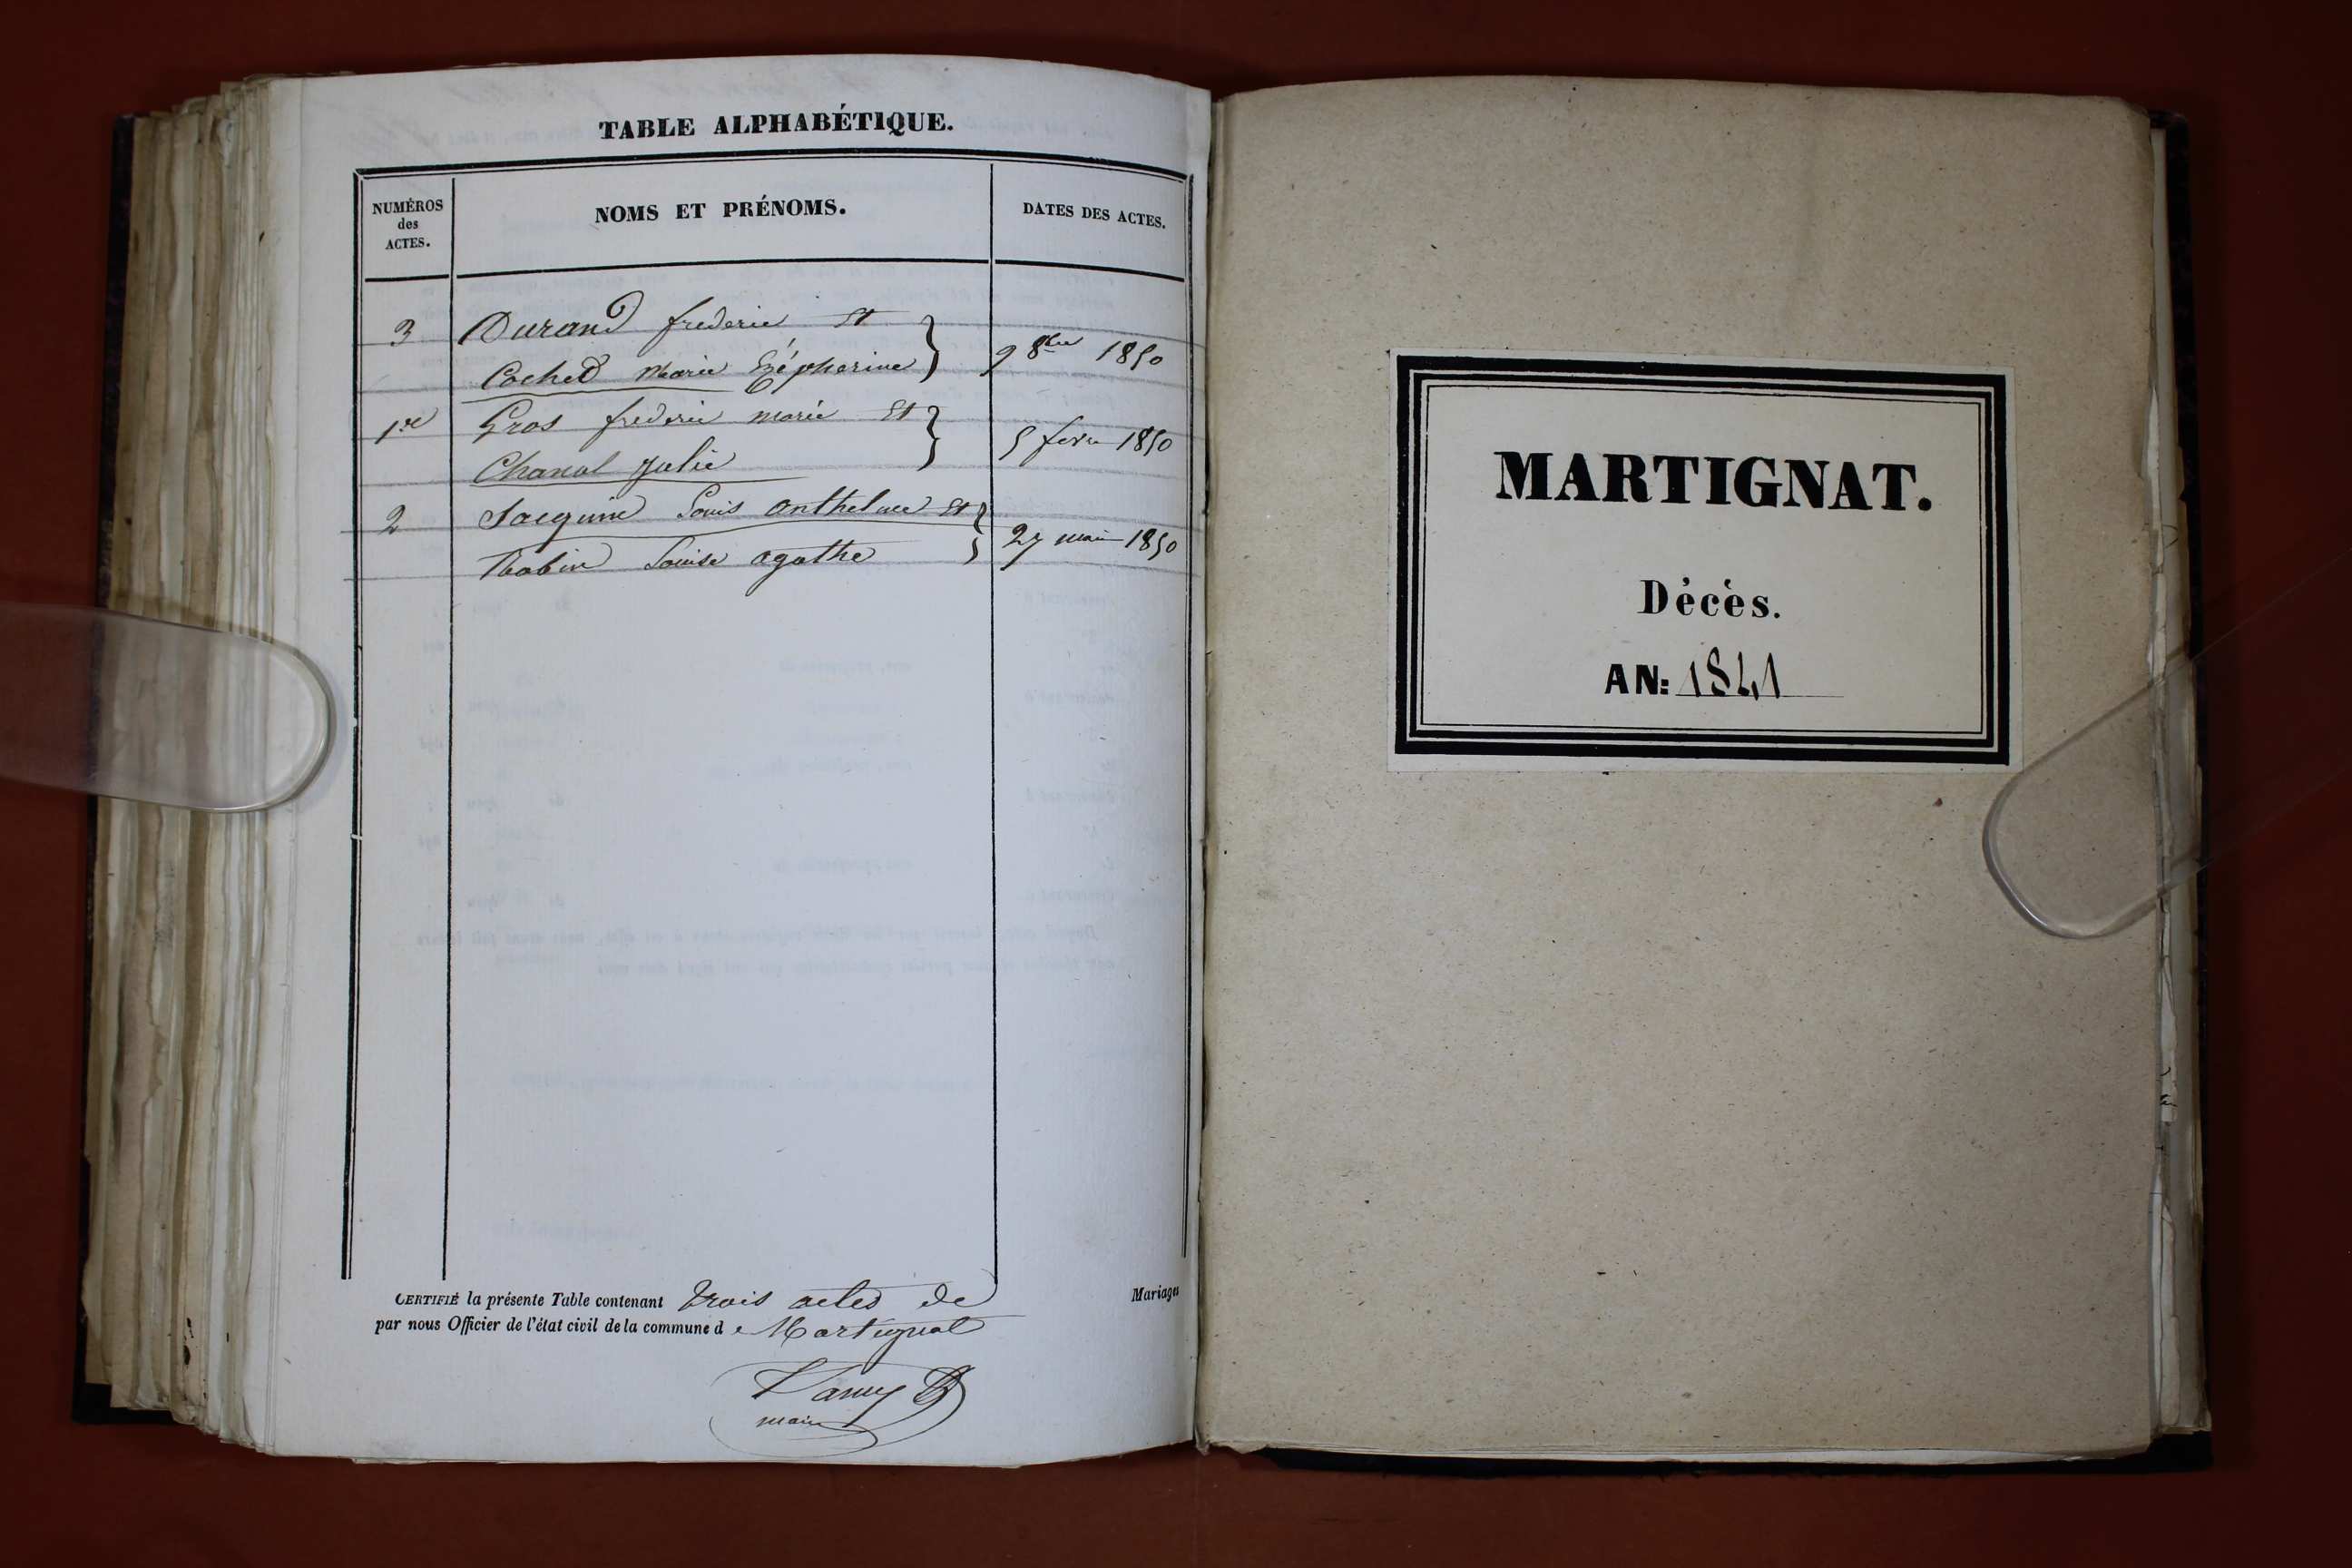 TABLE ALPHABÉTIQUE.
NUMÉROS
des
ACTES.
NOMS ET PRÉNOMS.
DATES DES ACTES.
3 Durand frederic et
Cochet Marie Zépherine 9 8bre 1850
1er Gros frederic marie et
Chanal Julie 5 fevr 1850
2 Jacquine Louis anthelme et
Robin Louise agathe 27 mai 1850
CERTIFIÉ la présente Table contenant trois actes de Mariages
par nous Officier de l'état civil de la commune de Martignat
maire
MARTIGNAT.
Décès.
AN: 1841